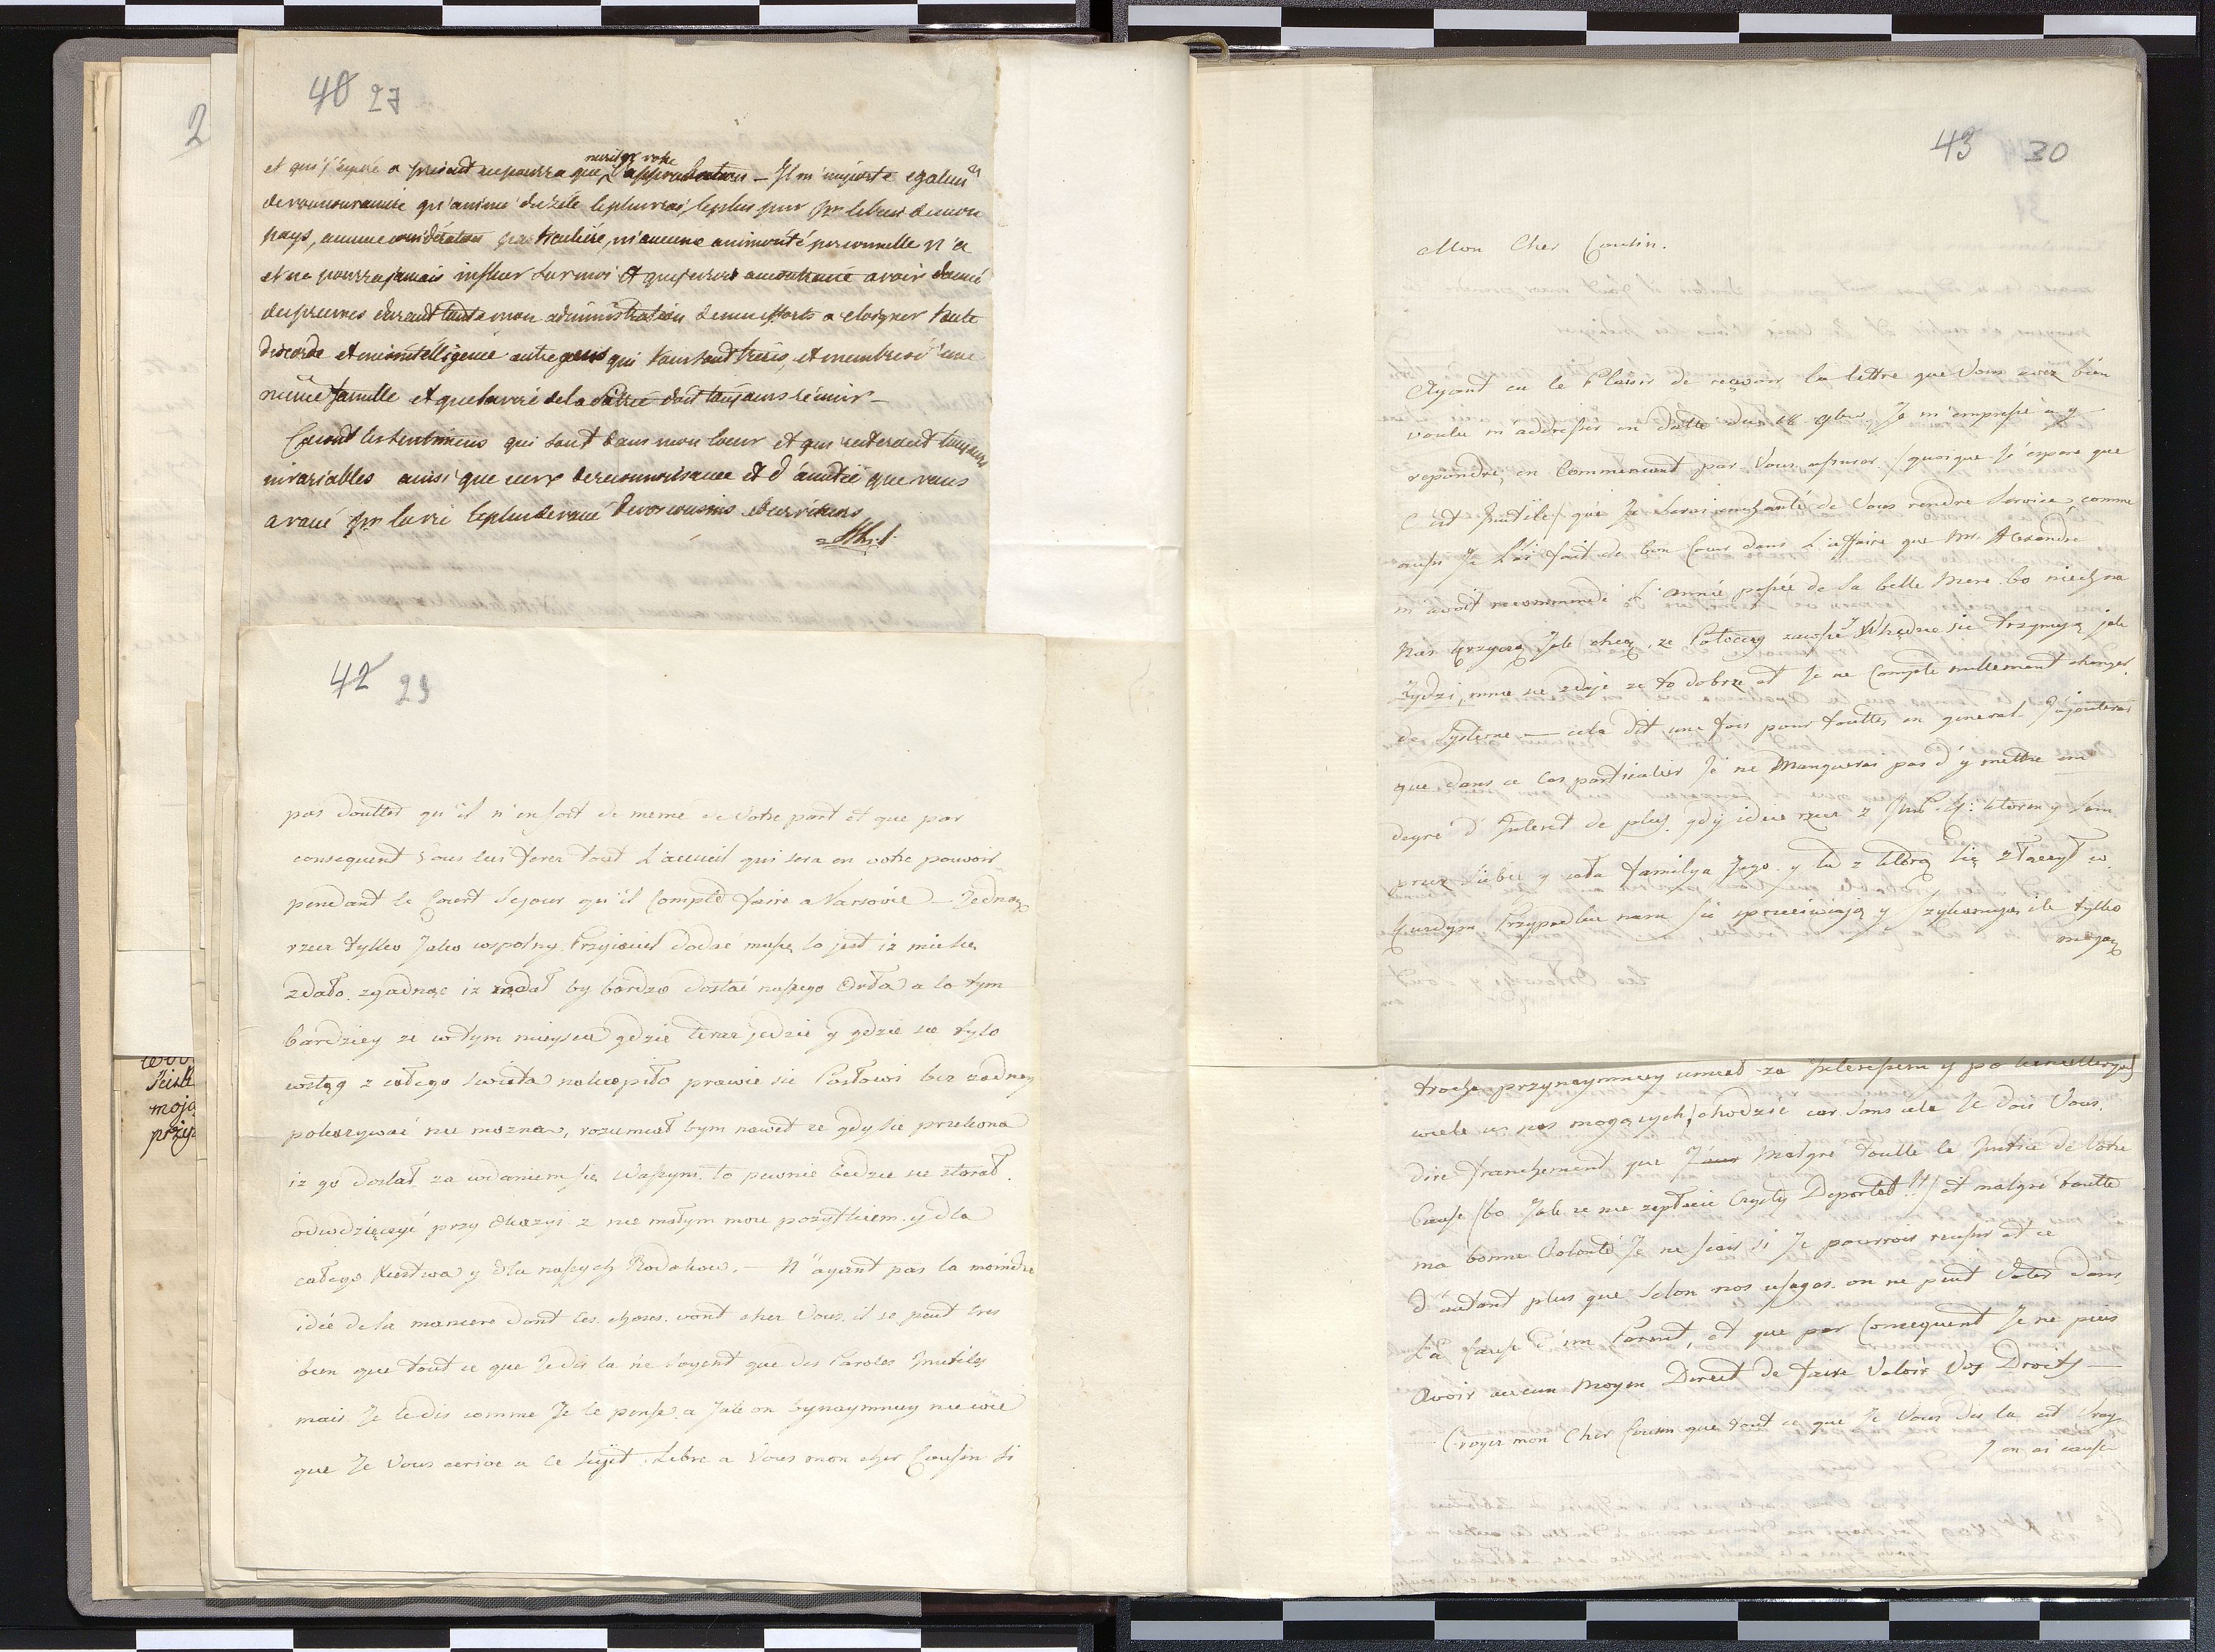 40 27
et qui j'espére a présent ne pourra que mériter votre l'approbation — Il m'importe egalem^t
de vous convaincre qu'animé du zéle le plus vrai, le plus pur p^r le bien de mon
pays, aucune considération particulière, ni aucune animosité personnelle n'a
et ne pourra jamais influer sur moi et que je crois au contraire avoir donné
des preuves durant toute mon administration de mes efforts a eloigner toute
discorde et mésintelligence entre gens qui tous sont frères, et membres d'une
même famille et que l'amour de la Patrie doit toujours réunir —
Ce sont les sentimens qui sont dans mon coeur et qui resteront toujours
invariables ainsi que ceux de reconnoissance et d'amitié que vous
a voué p^r la vie le plus devoué de vos cousins et serviteurs
42 29
pas doutter qu'il n'en soit de meme de Votre part et que par
consequent Vous lui ferez tout L'accueil qui sera en votre pouvoir
pendant le Court Sejour qu'il Compte faire a Varsovie — Jedną
rzecz tylko Jako wspolny Przyiaciel dodać muszę to jest iż mi się
zdało zgadnąć iż żądał by bardzo dostać naszego Orła a to tym
bardziey że w tym mieyscu gdzie teraz jedzie y gdzie se tylo
wstąg z całego swiata nakupiło prawie się Posłowi bez żadney
pokazywać nie można, rozumiał bym nawet że gdy się przekona
iż go dostał za wdaniem się Waszym to pewnie bedzie se starał
odwdzięczyć przy Okazyi z nie małym moze pożytkiem y dla
całego Xięstwa y dla naszych Rodakow. — N'ayant pas la moindre
idée de la maniere dont les choses vont chez Vous il se peut tres
bien que tout ce que Je dis la ne soyent que des Paroles Inutiles
mais Je le dis comme Je le pense a Jak on bynaymniey nie wie
que Je Vous ecrive a ce sujet. Libre a Vous mon cher Cousin si
43 30
Mon Cher Cousin.
Ayant eu le Plaisir de reçevoir la lettre que Vous avez bien
voulu m'addresser en datte du 18 9bre Je m'empresse a y
repondre, en Commencent par Vous assurer /quoique J'espere que
C'est Inutile/ que Je serai enchanté de Vous rendre Service, comme
aussi Je L'ai fait de bon Coeur dans L'affaire que Mr. Alexandre
m'avoit recommendé L'année passée de Sa belle Mere. bo niech na
nas krzyczą Jak chcą, że Potoccy zawsze Wszędzie się trzymają jak
Żydzi, mnie się zdaje ze to dobrze et Je ne Compte nullement changer
de Systeme — cela dit une fois pour touttes en general. J'ajouterai
que dans ce Cas particulier Je ne Manquerai pas d'y mettre un
degré d'Interet de plus, gdy idzie rzecz z ktorey sam
przez siebie y cała familya Jego y ta z ktorą się złączył w
Kazdym Przypadku nam się sprzeciwiają y szykanuią ile tylko
mogą
trochę przynaymniey umiał za Interessem y po
wiele u nas mogących/ chodzić car sans cela Je dois Vous
dire franchement que Malgré toutte la Justice de Votre
Cause /bo Jak że nie zapłacić Czysty Deportat!!/ et malgré toutte
ma bonne Volonté Je ne sçais si Je pourrois reussir et ce
d'autant plus que selon nos usages on ne peut Voter dans
La Cause d'un Parent, et que par Consequent Je ne puis
Avoir aucun Moyen Direct de faire Valoir Vos Droits —
Croyez mon Cher Cousin que tout ce que Je Vous dis la est Vray
J'en ai causé